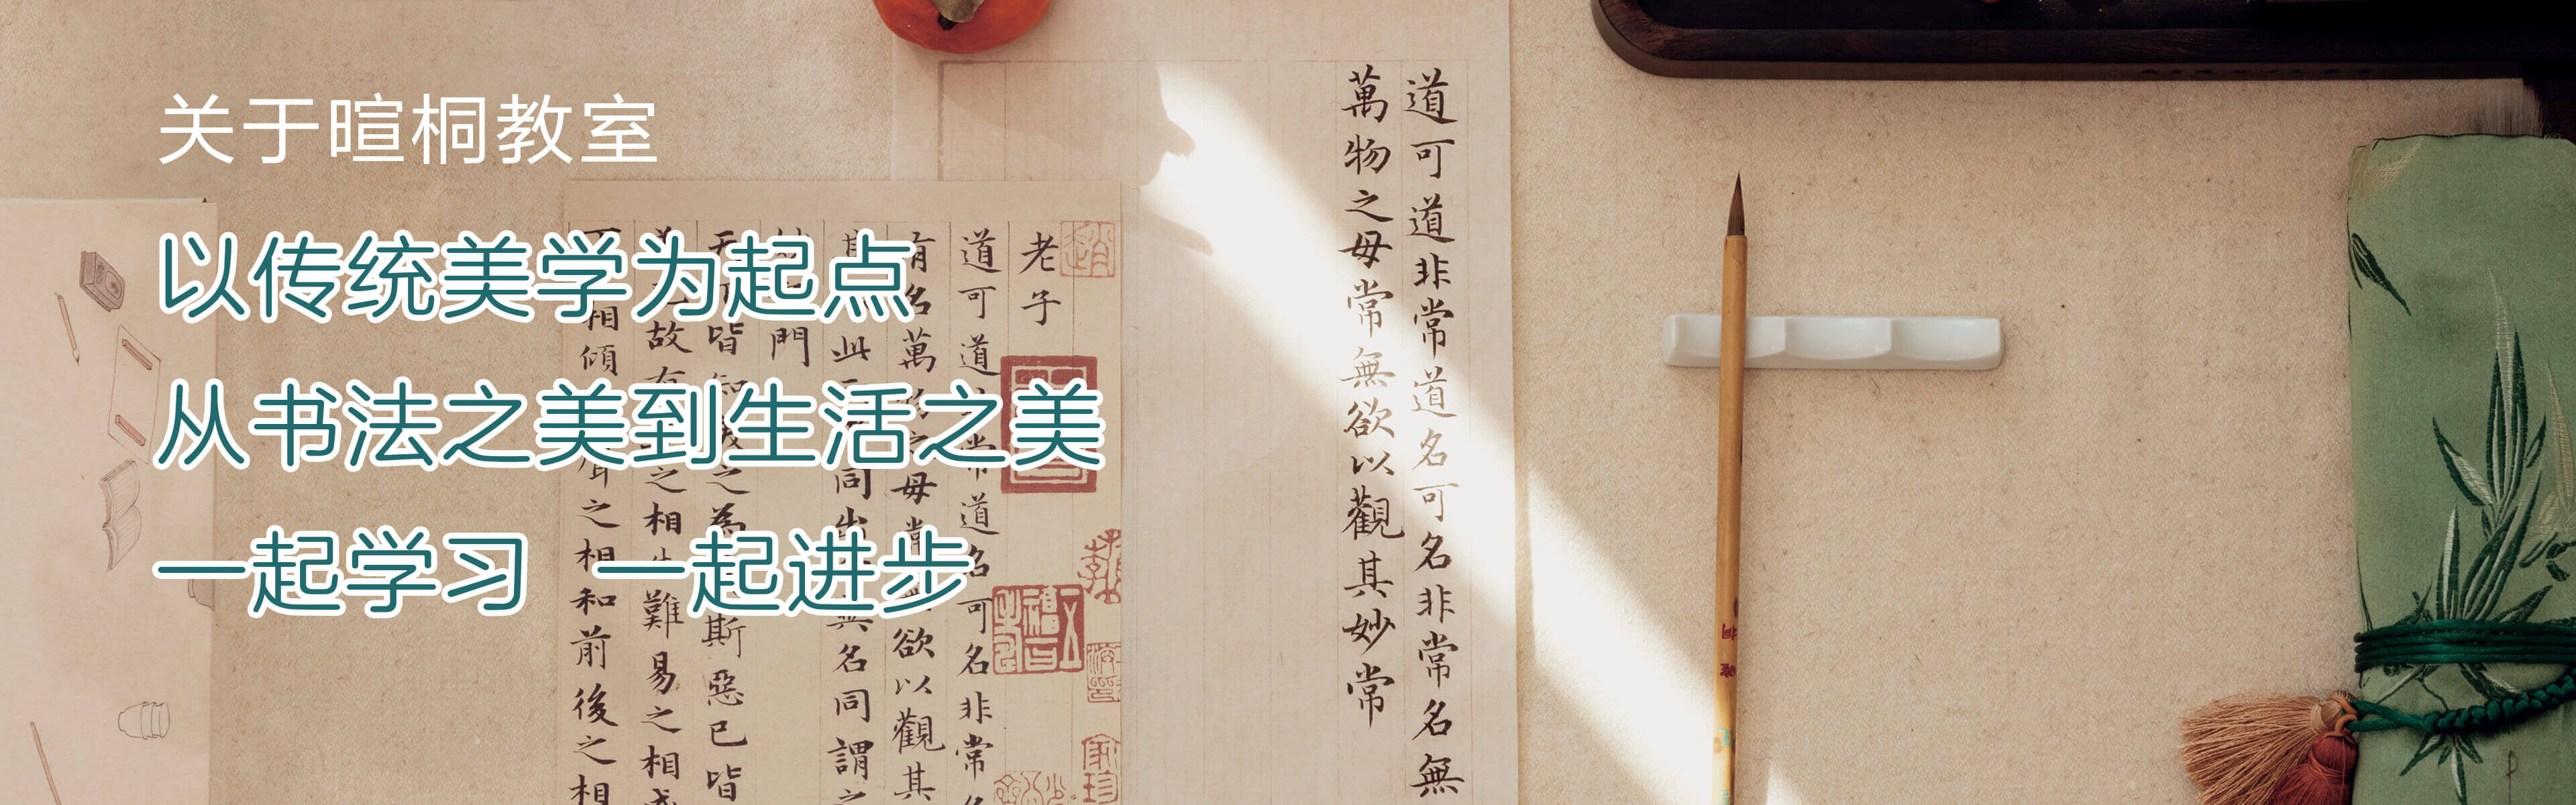 关于暄桐教室
以传统美学为起点
从书法之美到生活之美
一起学习 一起进步
道可道非常道名可名非常名無
萬物之母常無欲以觀其妙常
老子
道可道 常道名可名非常
有名萬物之母常 欲以觀其
此 同出 異名同謂之
門
皆知 之為 斯惡已皆
故有 之相 難易之相
相傾 聲之相和前後之相